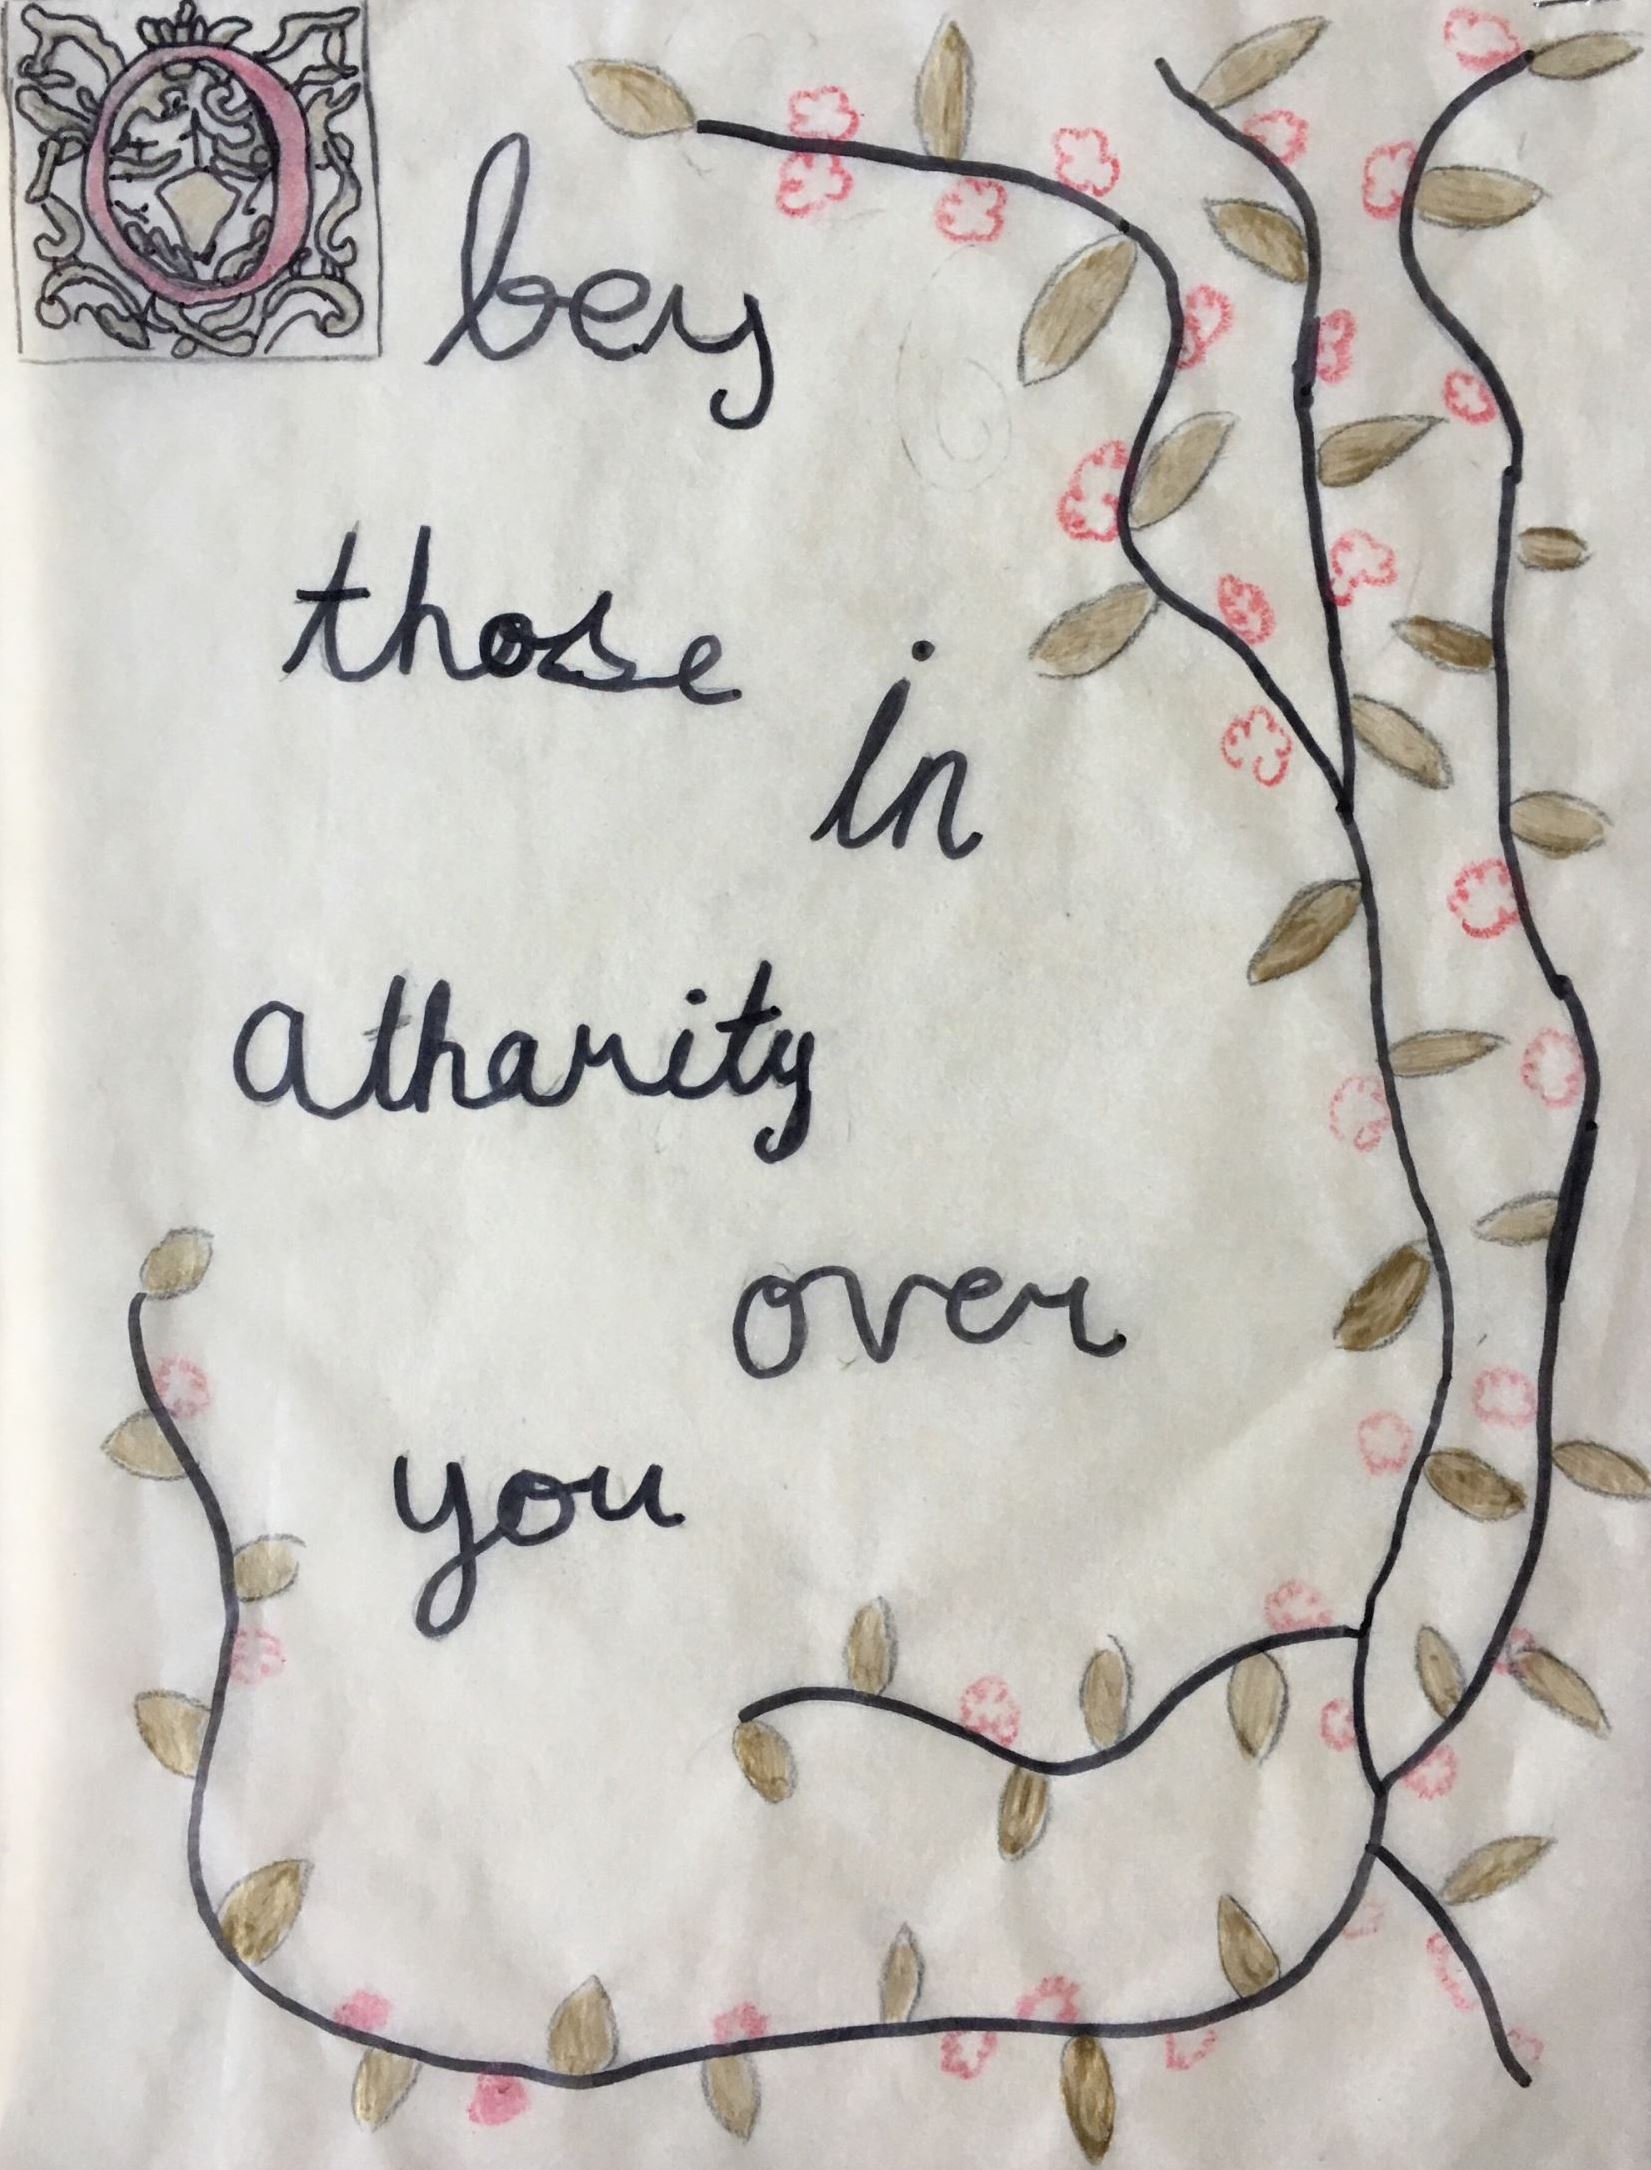 Obey
those in
atharity
over
you